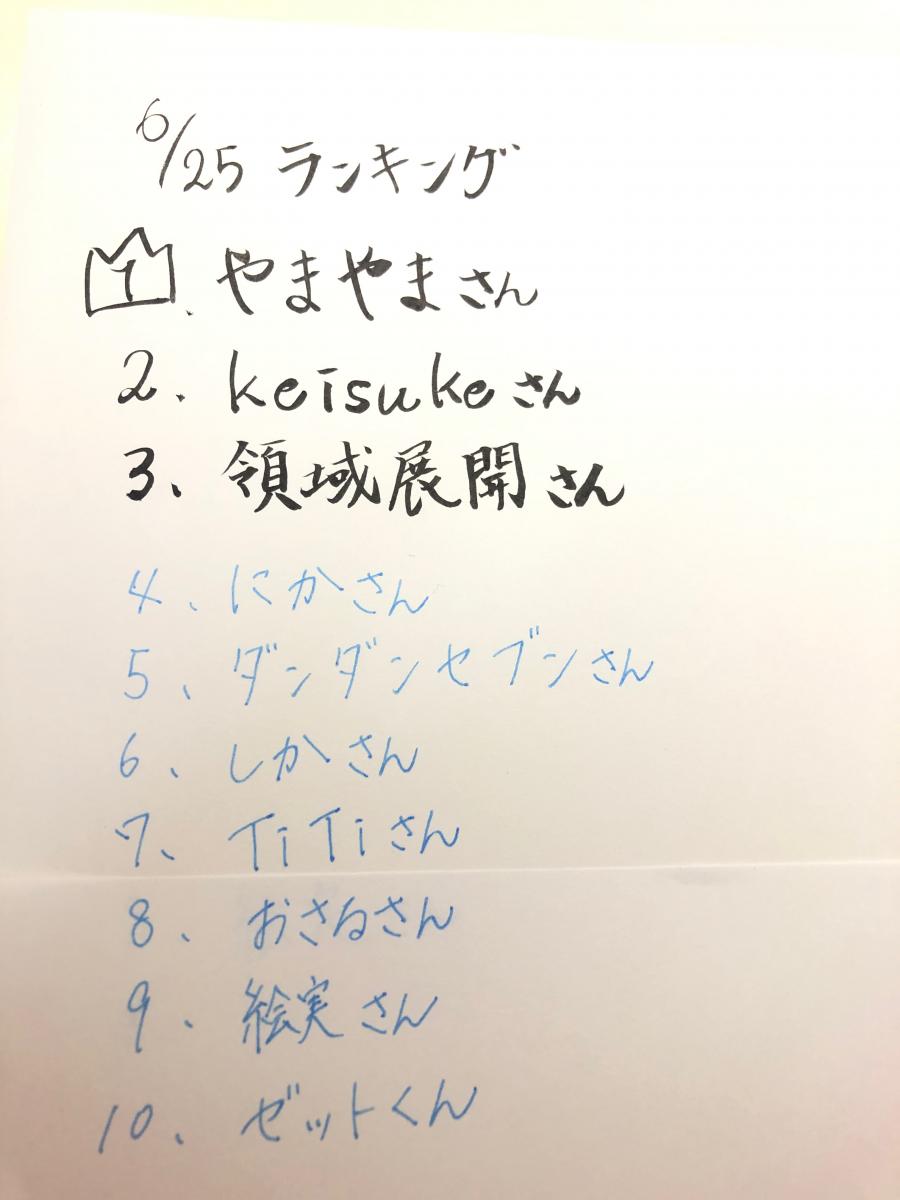 6/25 ランキング
1. やまやまさん
2. keisukeさん
3、領域展開さん
4、にかさん
5、ダンダンセブンさん
6、しかさん
7、TiTiさん
8、おさるさん
9、絵実さん
10、ゼットくん